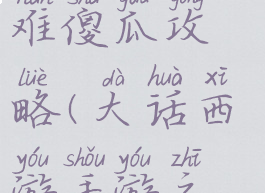 nán shǎ guā gōng
难傻瓜攻
lüè dà huà xī
略(大话西
yóu shǒu yóu zhī
游手游之